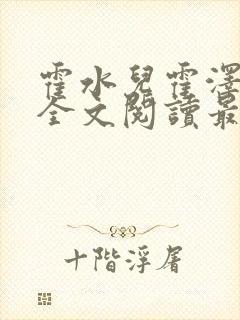 霍水兒霍澤
全文閱讀最
十階浮屠